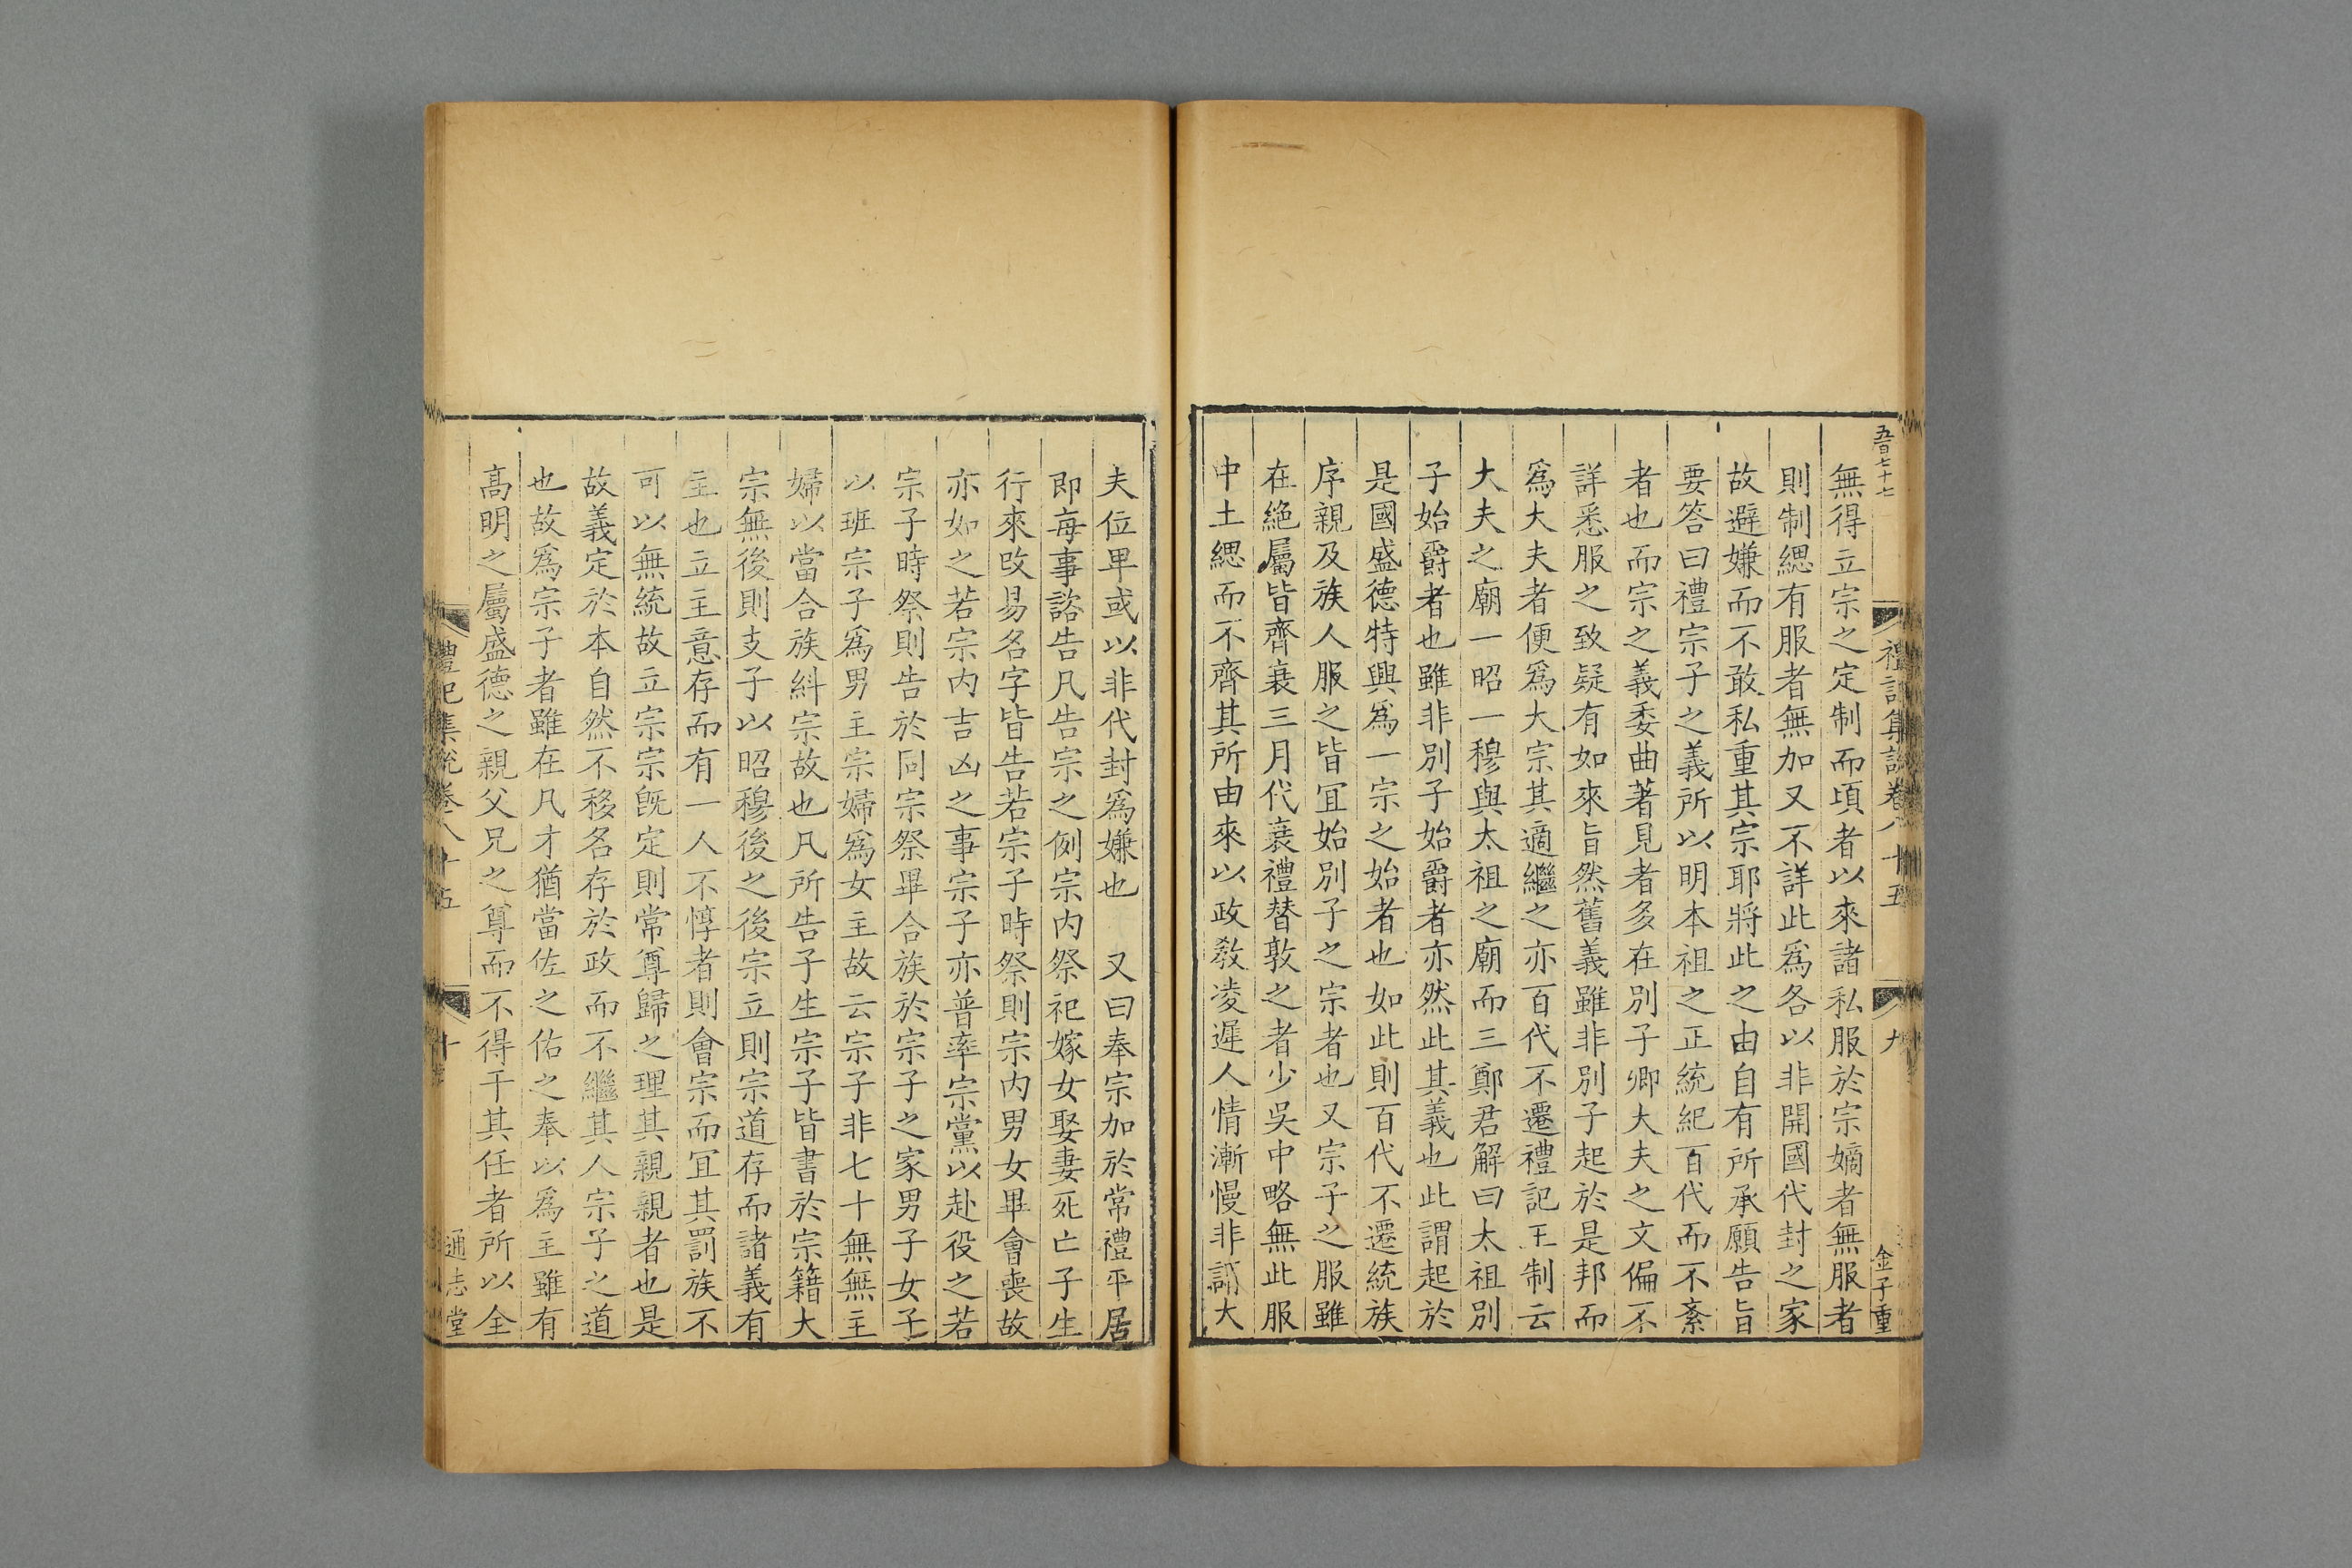 五百七十七
禮記集說卷八十五
九
金子重
無得立宗之定制而頃者以來諸私服於宗嫡者無服者
則制緦有服者無加又不詳此爲各以非開國代封之家
故避嫌而不敢私重其宗耶將此之由自有所承願告旨
要答曰禮宗子之義所以明本祖之正統紀百代而不紊
者也而宗之義委曲著見者多在別子卿大夫之文偏不
詳悉服之致疑有如來旨然舊義雖非別子起於是邦而
爲大夫者便爲大宗其適繼之亦百代不遷禮記王制云
大夫之廟一昭一穆與太祖之廟而三鄭君解曰太祖別
子始爵者也雖非別子始爵者亦然此其義也此謂起於
是國盛德特興爲一宗之始者也如此則百代不遷統族
序親及族人服之皆冝始別子之宗者也又宗子之服雖
在絶屬皆齊衰三月代衰禮替敦之者少吳中略無此服
中土緦而不齊其所由來以政敎凌遲人情漸慢非謂大
夫位卑或以非代封爲嫌也 又曰奉宗加於常禮平居
即每事諮告凡告宗之例宗内祭祀嫁女娶妻死亡子生
行來改易名字皆告若宗子時祭則宗内男女畢會喪故
亦如之若宗内吉凶之事宗子亦普率宗黨以赴役之若
宗子時祭則告於同宗祭畢合族於宗子之家男子女子
以班宗子爲男主宗婦爲女主故云宗子非七十無無主
婦以當合族糾宗故也凡所告子生宗子皆書於宗籍大
宗無後則支子以昭穆後之後宗立則宗道存而諸義有
主也立主意存而有一人不惇者則會宗而冝其罰族不
可以無統故立宗宗旣定則常尊歸之理其親親者也是
故義定於本自然不移名存於政而不繼其人宗子之道
也故爲宗子者雖在凡才猶當佐之佑之奉以爲主雖有
高明之屬盛德之親父兄之尊而不得干其任者所以全
禮記集說卷八十五
十
通志堂